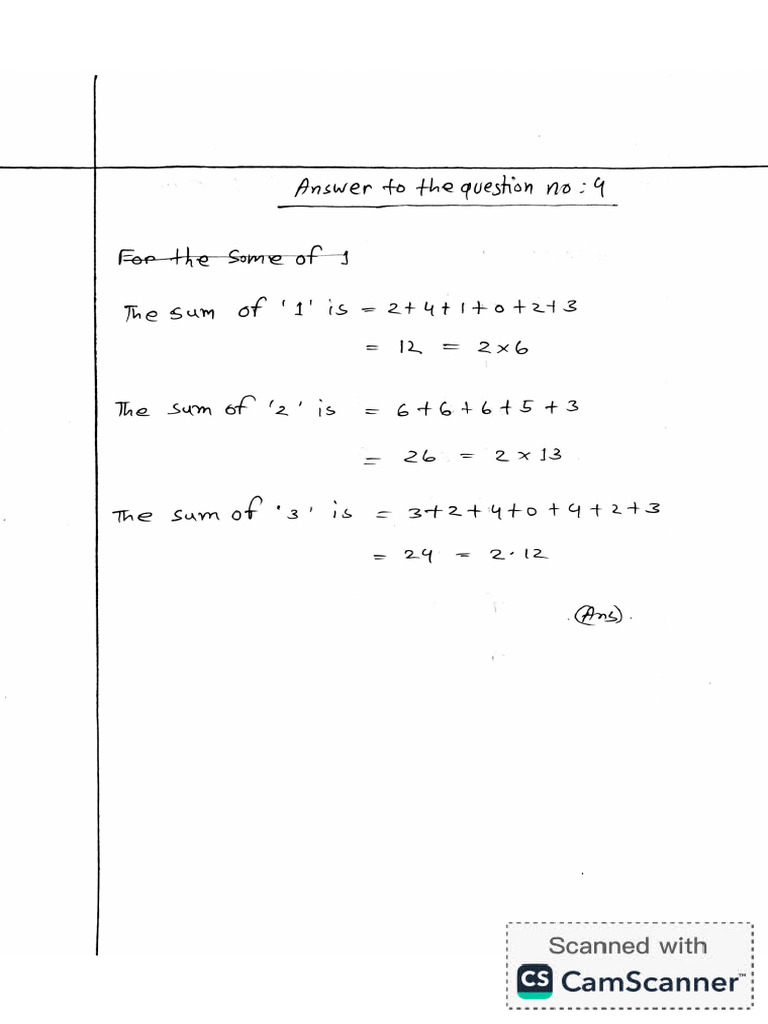 Answer to the question no : 4
For the Some of 1
The sum of '1' is = 2+4+1+0+2+3
= 12 = 2×6
The sum of '2' is = 6+6+6+5+3
= 26 = 2×13
The sum of '3' is = 3+2+4+0+4+2+3
= 24 = 2·12
(Ans).
Scanned with
CS CamScanner™